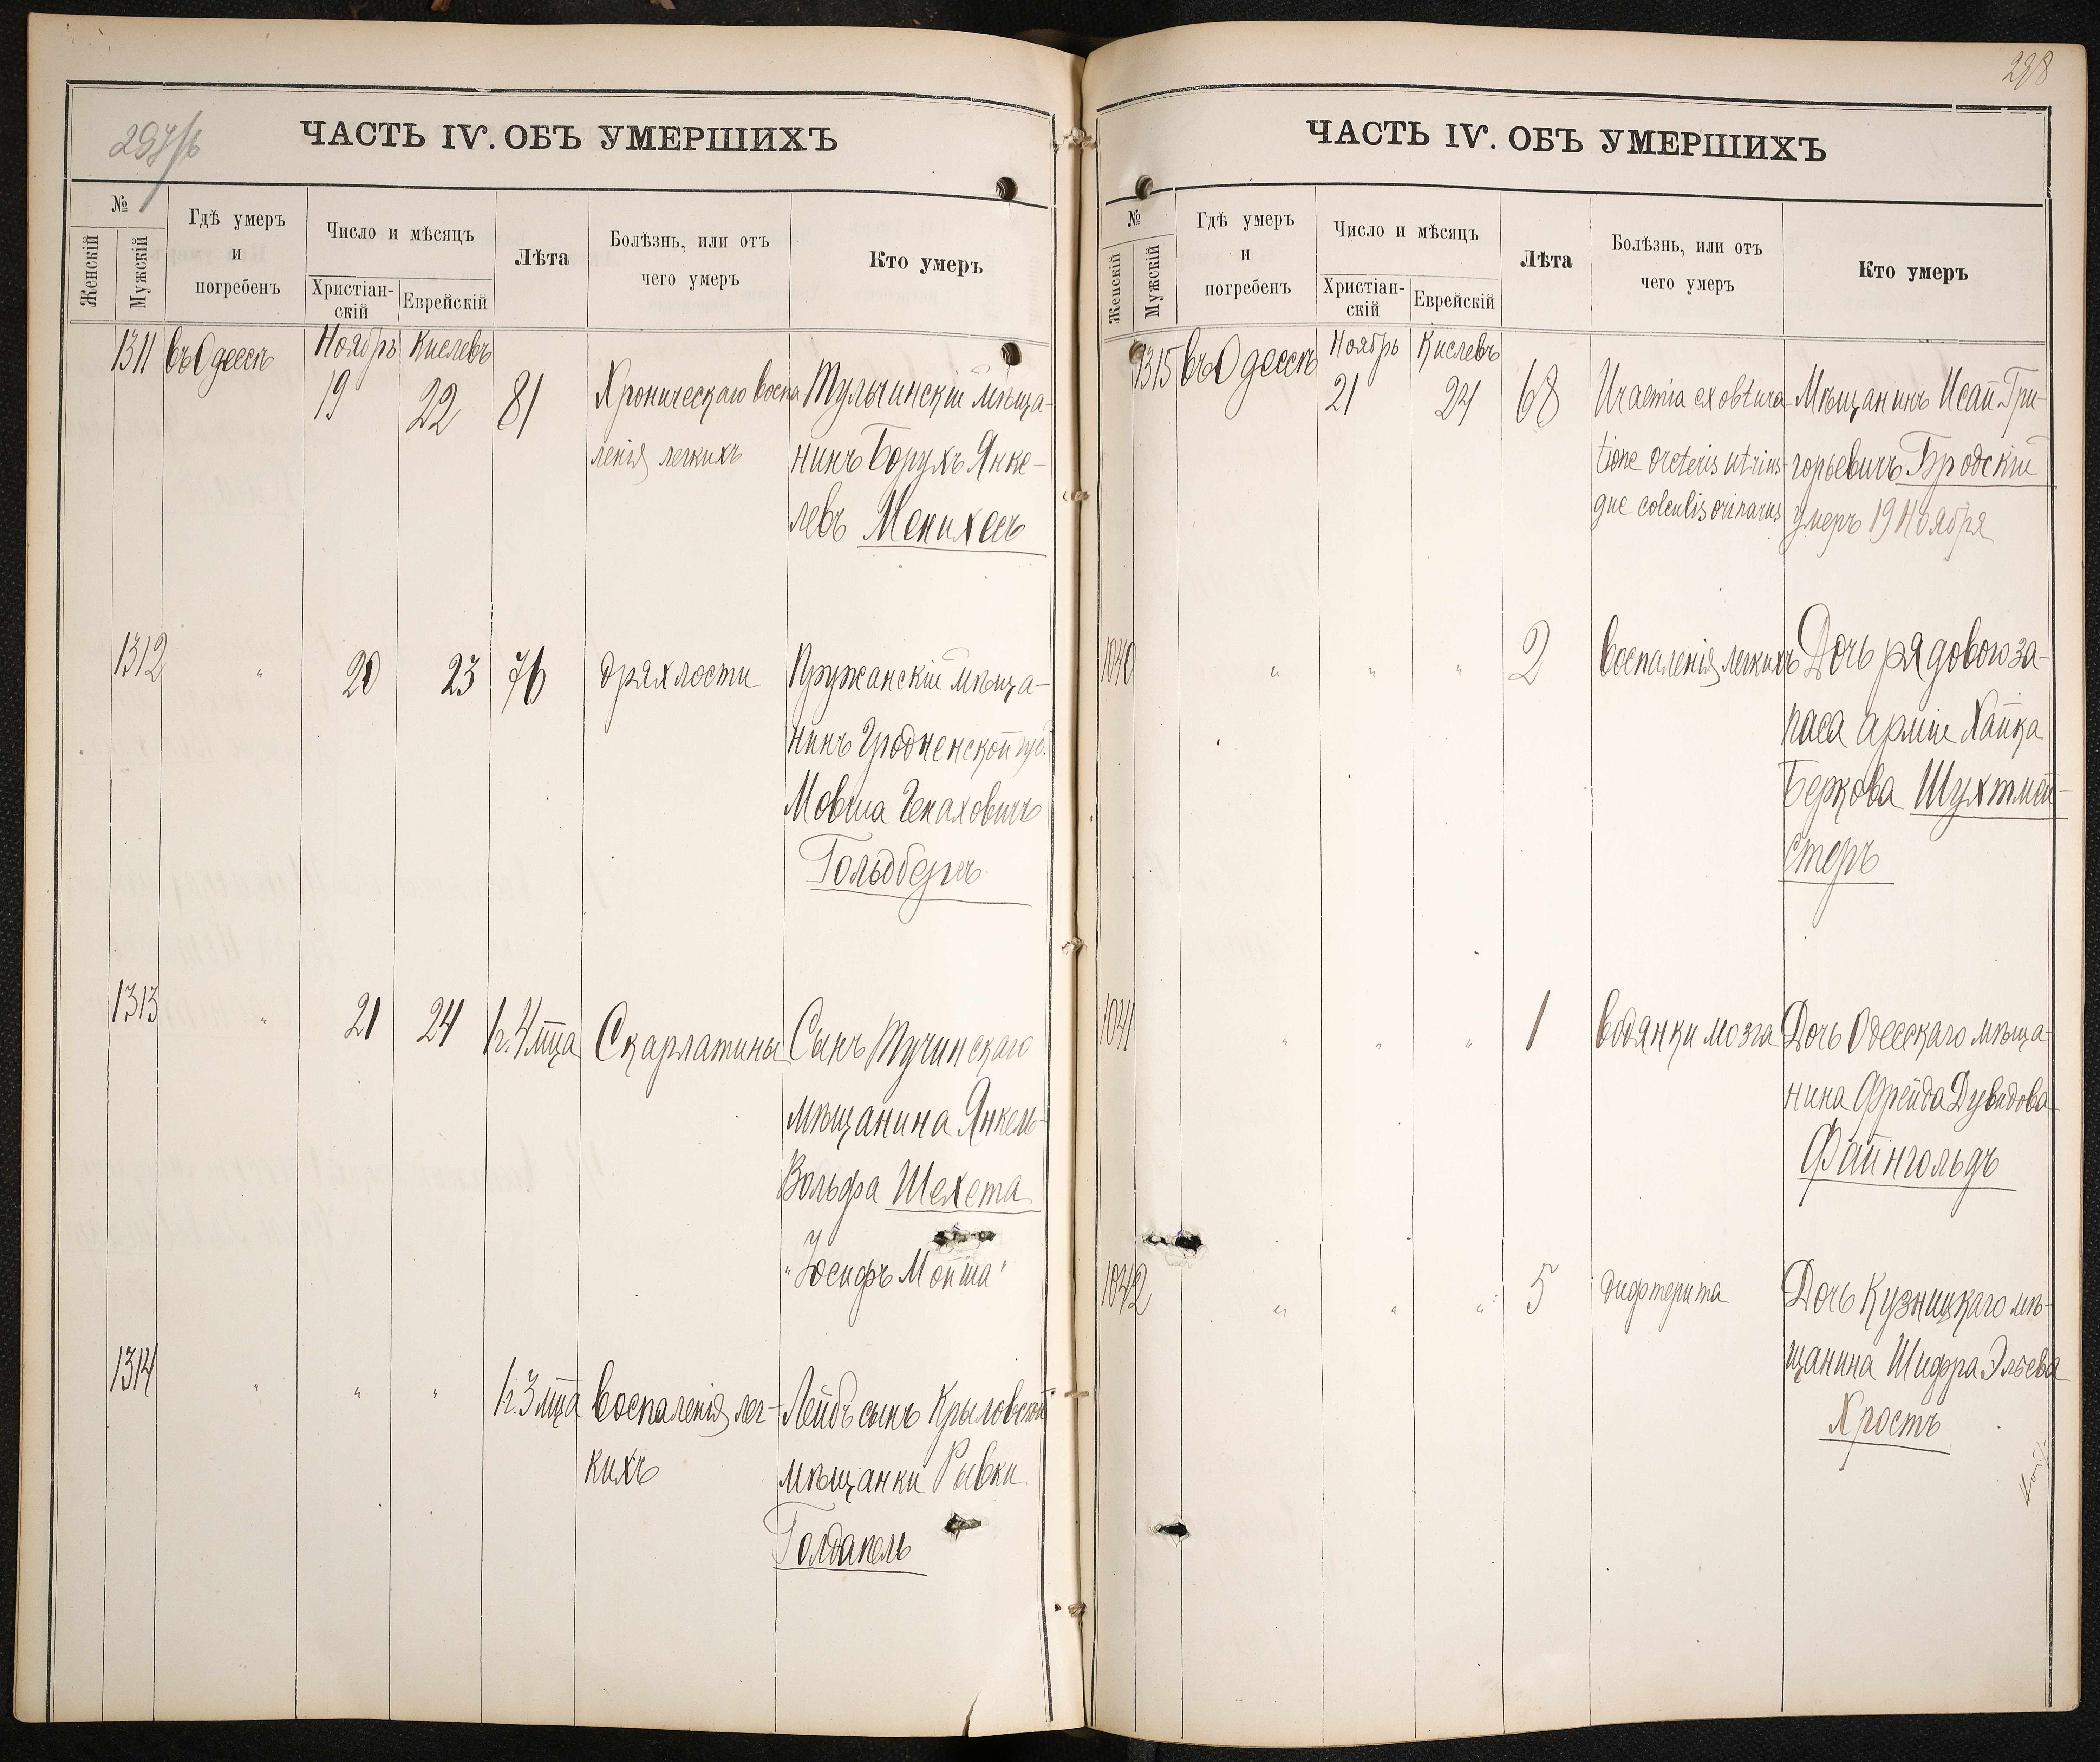 297/б
ЧАСТЬ IV. ОБЪ УМЕРШИХЪ
№
Женскій
Мужскій
Гдѣ умеръ
и
погребенъ
Число и мѣсяцъ
Христіан-
скій
Еврейскій
Лѣта
Болѣзнь, или отъ
чего умеръ
Кто умеръ
1311 въ Одессѣ Ноябрь Кислевъ
19 22 81 Хроническаго воспа Тульчинскій мѣща-
ленія легкихъ нинъ Борухъ Янке-
левъ Менихесъ
1312 " 20 23 76 дряхлости Пружанскій мѣща-
нинъ Гродненской губ.
Мовша Генаховичъ
Гольдбергъ
1313 " 21 24 1 г. 4 мца Скарлатины Сынъ Тучинскаго
мѣщанина Янкель-
Вольфа Шехета
"Юсифъ Мойша"
1314 " " " 1 г. 3 мца воспаленія лег- Лейбъ сынъ Крыловской
кихъ мѣщанки Рывки
Голдапель
298
ЧАСТЬ IV. ОБЪ УМЕРШИХЪ
№
Женскій
Мужскій
Гдѣ умеръ
и
погребенъ
Число и мѣсяцъ
Христіан-
скій
Еврейскій
Лѣта
Болѣзнь, или отъ
чего умеръ
Кто умеръ
1315 въ Одессѣ Ноябрь Кислевъ
21 24 68 Uraemia ex obtura- Мѣщанинъ Исай Гри-
tione oreteris utrius- горьевичъ Бродскій
que colculis orinarus умеръ 19 Ноября
1040 " " " 2 воспаленія легкихъ Дочь рядового за-
паса арміи Хайка
Беркова Шухтмей-
стеръ
1041 " " " 1 водянки мозга Дочь Одесскаго мѣща-
нина Фрейда Дувидова
Файнгольдъ
1042 " " " 5 дифтерита Дочь Кузницкаго мѣ-
щанина Шифра Эльева
Хростъ